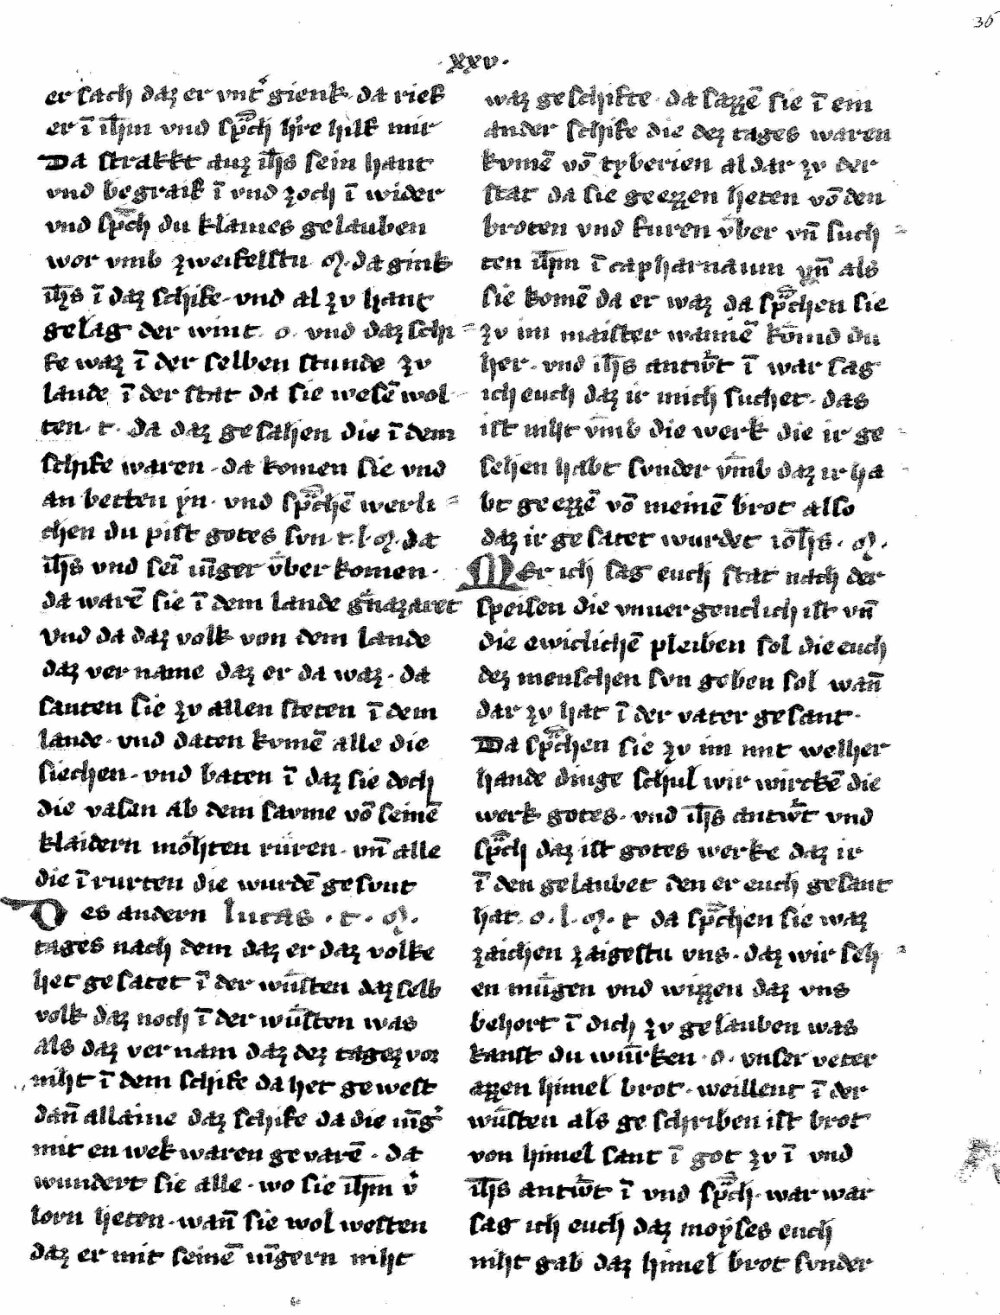 36
·xxv·
er sach daz er vnt᷑ gienk · da rief
er ī ih̄m vnd sp̄ch h᷑re hilf mir
Da strakkt auz ih̄s sein hant
vnd begraif ī vnd zoch ī wider
vnd sp̄ch du klaines gelauben
wor vmb zweifelstu · da gink
ih̄s ī daz schife · vnd al zv hant
gelag der wint · o · vnd daz schi
fe waz ī der selben stunde zv
lande ī der stat da sie wesē wol
ten · t · da daz gesahen die ī dem
schife waren · da komen sie vnd
an betten yn · vnd sp̄chē werli
chen du pist gotes svn · t · l · m · da
ih̄s vnd sei īu̅ger v̄ber komen ·
da warē sie ī dem lande gn̄azaret
vnd da daz volk von dem lande
daz ver name daz er da waz · da
santen sie zv allen steten ī dem
lande · vnd daten kvmē alle die
siechen · vnd baten ī daz sie doch
die vasan ab dem savme vō seinē
klaidern möhten rüren · vn̄ alle
die ī rurten die wurdē gesunt
Des andern lucas · t · m ·
tages nach dem daz er daz volke
het gesatet ī der wüsten daz selb
volk daz noch ī der wüsten was
als daz ver nam daz dez tagez vor
niht ī dem schife da het gewest
dan̄ allaine daz schife da die iu̅g᷑
mit en wek waren gevarē · da
wundert sie alle · wo sie ih̄m v᷑
lorn heten · wan̄ sie wol westen
daz er mit seinē iu̅gern niht
waz geschifte · da sazzē sie ī em
ander schife die dez tages waren
kvmē vō tyberien al dar zv der
stat da sie geezzen heten vō den
broten vnd furen v̄ber vn̄ such
ten ih̄m ī capharnaum vn̄ als
sie komē da er waz da sp̄chen sie
zv im maister wannē kōmd du
her · vnd ih̄s antw᷑t ī war sag
ich euch daz ir mich suchet · das
ist niht vm̄b die werk die ir ge
sehen habt svnder vm̄b daz ir ha
bt geezzē vō meinē brot also
daz ir gesatet wurdet ioh̄s · m ·
Mer ich sag euch stat nach der
speisen die vnuergenclich ist vn̄
die ewiclichē pleiben sol die euch
dez menschen svn geben sol wan̄
dar zv hat ī der vater gesant ·
Da sp̄chen sie zv im mit welher
hande dinge schul wir wirckē die
werk gotes · vnd ih̄s antw᷑t vnd
sp̄ch daz ist gotes werke daz ir
ī den gelaubet den er euch gesant
hat · o · l · m · t da sp̄chen sie waz
zaichen zaigestu vns · daz wir seh
en mügen vnd wizzen daz vns
behort ī dich zv gelauben was
kanst du würken · o · vnser veter
azzen himel brot · weillent ī der
wüsten als geschriben ist brot
von himel sant ī got zv ī vnd
ih̄s antw᷑t ī vnd sp̄ch · war war
sag ich euch daz moyses euch
niht gab daz himel brot svnder